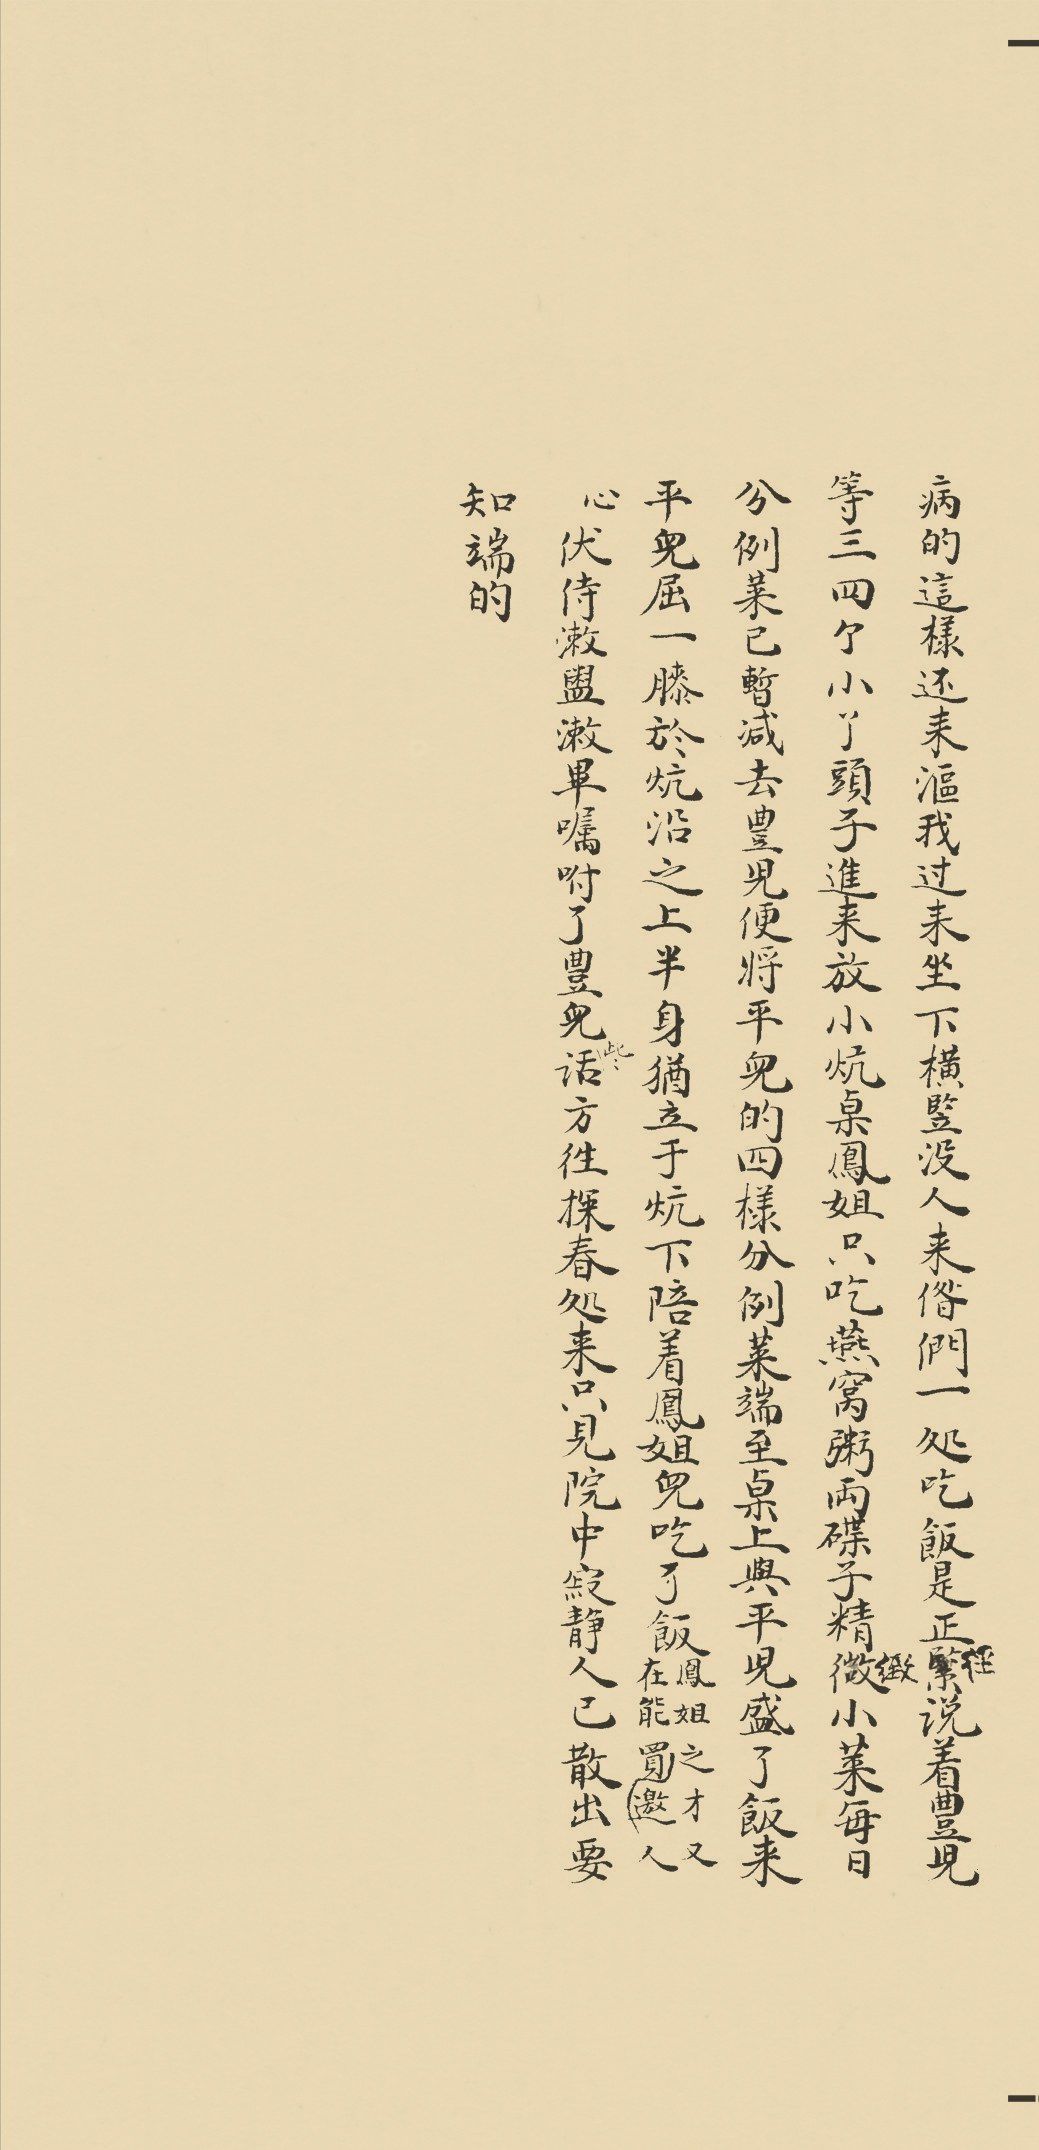 病的這樣还来漚我过来坐下橫竪没人来偺們一处吃飯是正緊说着豊児
經
等三四个小丫頭子進来放小炕桌鳳姐只吃燕窝粥兩碟子精微小菜每日
緻
分例菜已暫减去豊児便將平兒的四樣分例菜端至桌上與平児盛了飯来
平兒屈一膝於炕沿之上半身猶立于炕下陪着鳳姐兒吃了飯
鳳姐之才又
在能買邀人
心伏侍漱盥漱畢嘱咐了豊兒话方徃探春处来只見院中寂静人已散出要
些
知端的